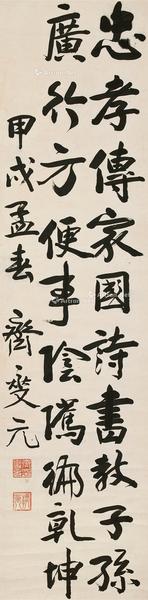 忠孝傳家國詩書教子孫
廣行方便事陰騭滿乾坤
甲戌孟春
齊燮元